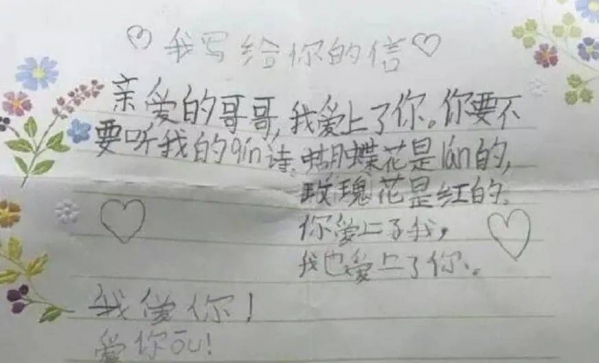 ♡我写给你的信♡
亲爱的哥哥,我爱上了你。你要不
要听我的qín诗。蝴蝶花是lán的,
玫瑰花是红的。
你爱上了我,
我也爱上了你。
我爱你!
爱你ōu!